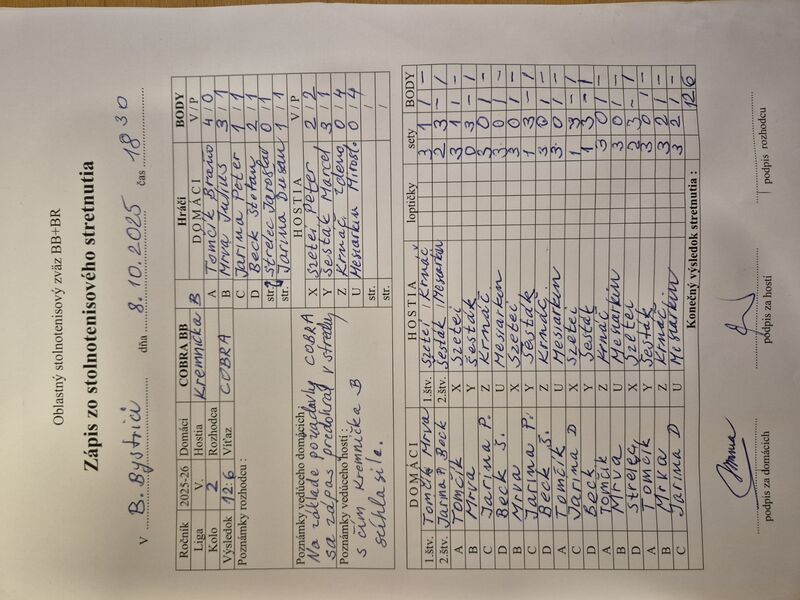 Oblastný stolnotenisový zväz BB+BR
Zápis zo stolnotenisového stretnutia
v B. Bystrici dňa 8.10.2025 čas 18 30
Ročník 2025-26 Domáci COBRA BB
Liga V. Hostia Kremnička B
Kolo 2 Rozhodca
Výsledok 12:6 Víťaz COBRA
Poznámky rozhodcu :
Hráči BODY
DOMÁCI V/P
A Tomčík Braňo 4/0
B Mrva Július 3/1
C Jarina Peter 1/1
D Beck Štefan 1/1
str. Strelec Jaroslav 0/1
str. Jarina Dušan 1/1
Poznámky vedúceho domácich
Na základe požiadavky COBRA
sa zápas predohral v stredu
Poznámky vedúceho hostí:
s čím Kremnička B
súhlasila.
HOSTIA V/P
X Szetei Peter 2/2
Y Šesták Marcel 3/1
Z Krnáč Zdeno 0/4
U Mesiarkin Mirosl. 0/4
str. /
str. /
DOMÁCI HOSTIA loptičky sety BODY
1.štv. Tomčík Mrva 1.štv. Szetei / Krnáč 3 1 1 -
2.štv. Jarina P. Beck 2.štv. Šesták / Mesiarkin 2 3 - 1
A Tomčík X Szetei 3 1 1 -
B Mrva Y Šesták 0 3 - 1
C Jarina P. Z Krnáč 3 0 1 -
D Beck Š. U Mesiarkin 3 0 1 -
B Mrva X Szetei 3 0 1 -
C Jarina P. Y Šesták 1 3 - 1
D Beck Š. Z Krnáč 3 0 1 -
A Tomčík U Mesiarkin 3 0 1 -
C Jarina D X Szetei 1 3 - 1
D Beck Y Šesták 1 3 - 1
A Tomčík Z Krnáč 3 0 1 -
B Mrva U Mesiarkin 3 0 1 -
D Strelec X Szetei 2 3 - 1
A Tomčík Y Šesták 3 0 1 -
B Mrva Z Krnáč 3 2 1 -
C Jarina D U Mesiarkin 3 2 1 -
Konečný výsledok stretnutia : 12 6
podpis za domácich podpis za hostí podpis rozhodcu